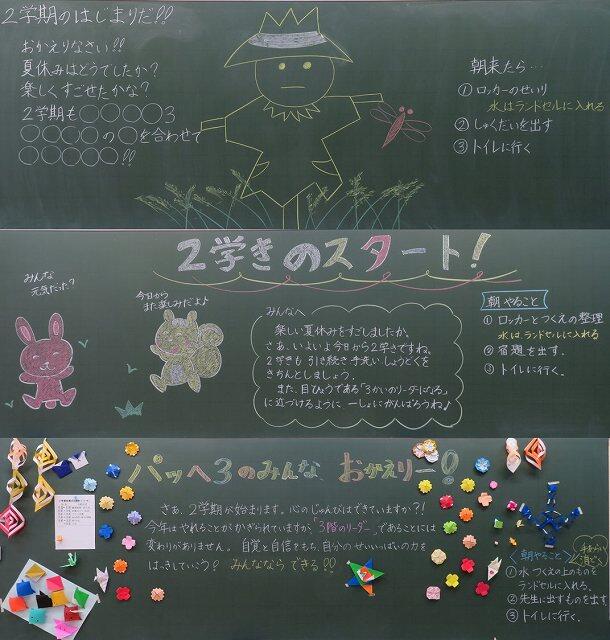 2学期のはじまりだ!!
おかえりなさい!!
夏休みはどうでしたか？
楽しくすごせたかな？
2学期も○○○○3
○○○○の○を合わせて
○○○○○!!
朝来たら…
①ロッカーのせいり
水はランドセルに入れる
②しゅくだいを出す
③トイレに行く
2学きのスタート!
みんな
元気だった？
今日から
また楽しみだよ♪
みんなへ
楽しい夏休みをすごしましたか。
さあ、いよいよ今日から2学きですね。
2学きも引き続き手洗いしょうどくを
きちんとしましょう。
また、目ひょうである「3かいのリーダーになる」
に近づけるように一しょにがんばろうね♪
朝やること
①ロッカーとつくえの整理
水はランドセルに入れる
②宿題を出す。
③トイレに行く。
パッヘ3のみんな おかえりー!!
さあ、2学期が始まります。心のじゅんびはできていますか?!
今年はやれることがかぎられていますが、"3階のリーダー"であることには
変わりがありません。自覚と自信をもち、自分のせいいっぱいの力を
はっきしていこう！ みんなならできる!!
朝やること
手あらい
消どく
①水 つくえの上のものを
ランドセルに入れる。
②先生に出すものを出す
③トイレに行く。